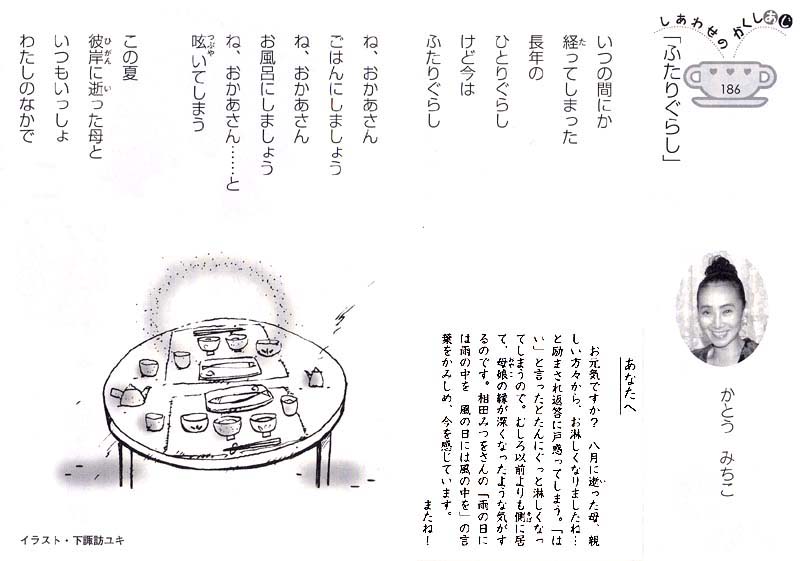 しあわせのかくしあじ
186
「ふたりぐらし」
かとう みちこ
いつの間にか
経ってしまった
長年の
ひとりぐらし
けど今は
ふたりぐらし
ね、おかあさん
ごはんにしましょう
ね、おかあさん
お風呂にしましょう
ね、おかあさん……と
呟いてしまう
この夏
彼岸に逝った母と
いつもいっしょ
わたしのなかで
あなたへ
お元気ですか? 八月に逝った母、親
しい方々から、お淋しくなりましたね…
と励まされ返答に戸惑ってしまう。「は
い」と言ったとたんにぐっと淋しくなっ
てしまうので。むしろ以前よりも側に居
て、母娘の縁が深くなったような気がす
るのです。相田みつをさんの「雨の日に
は雨の中を 風の日には風の中を」の言
葉をかみしめ、今を感じています。
またね!
イラスト・下諏訪ユキ